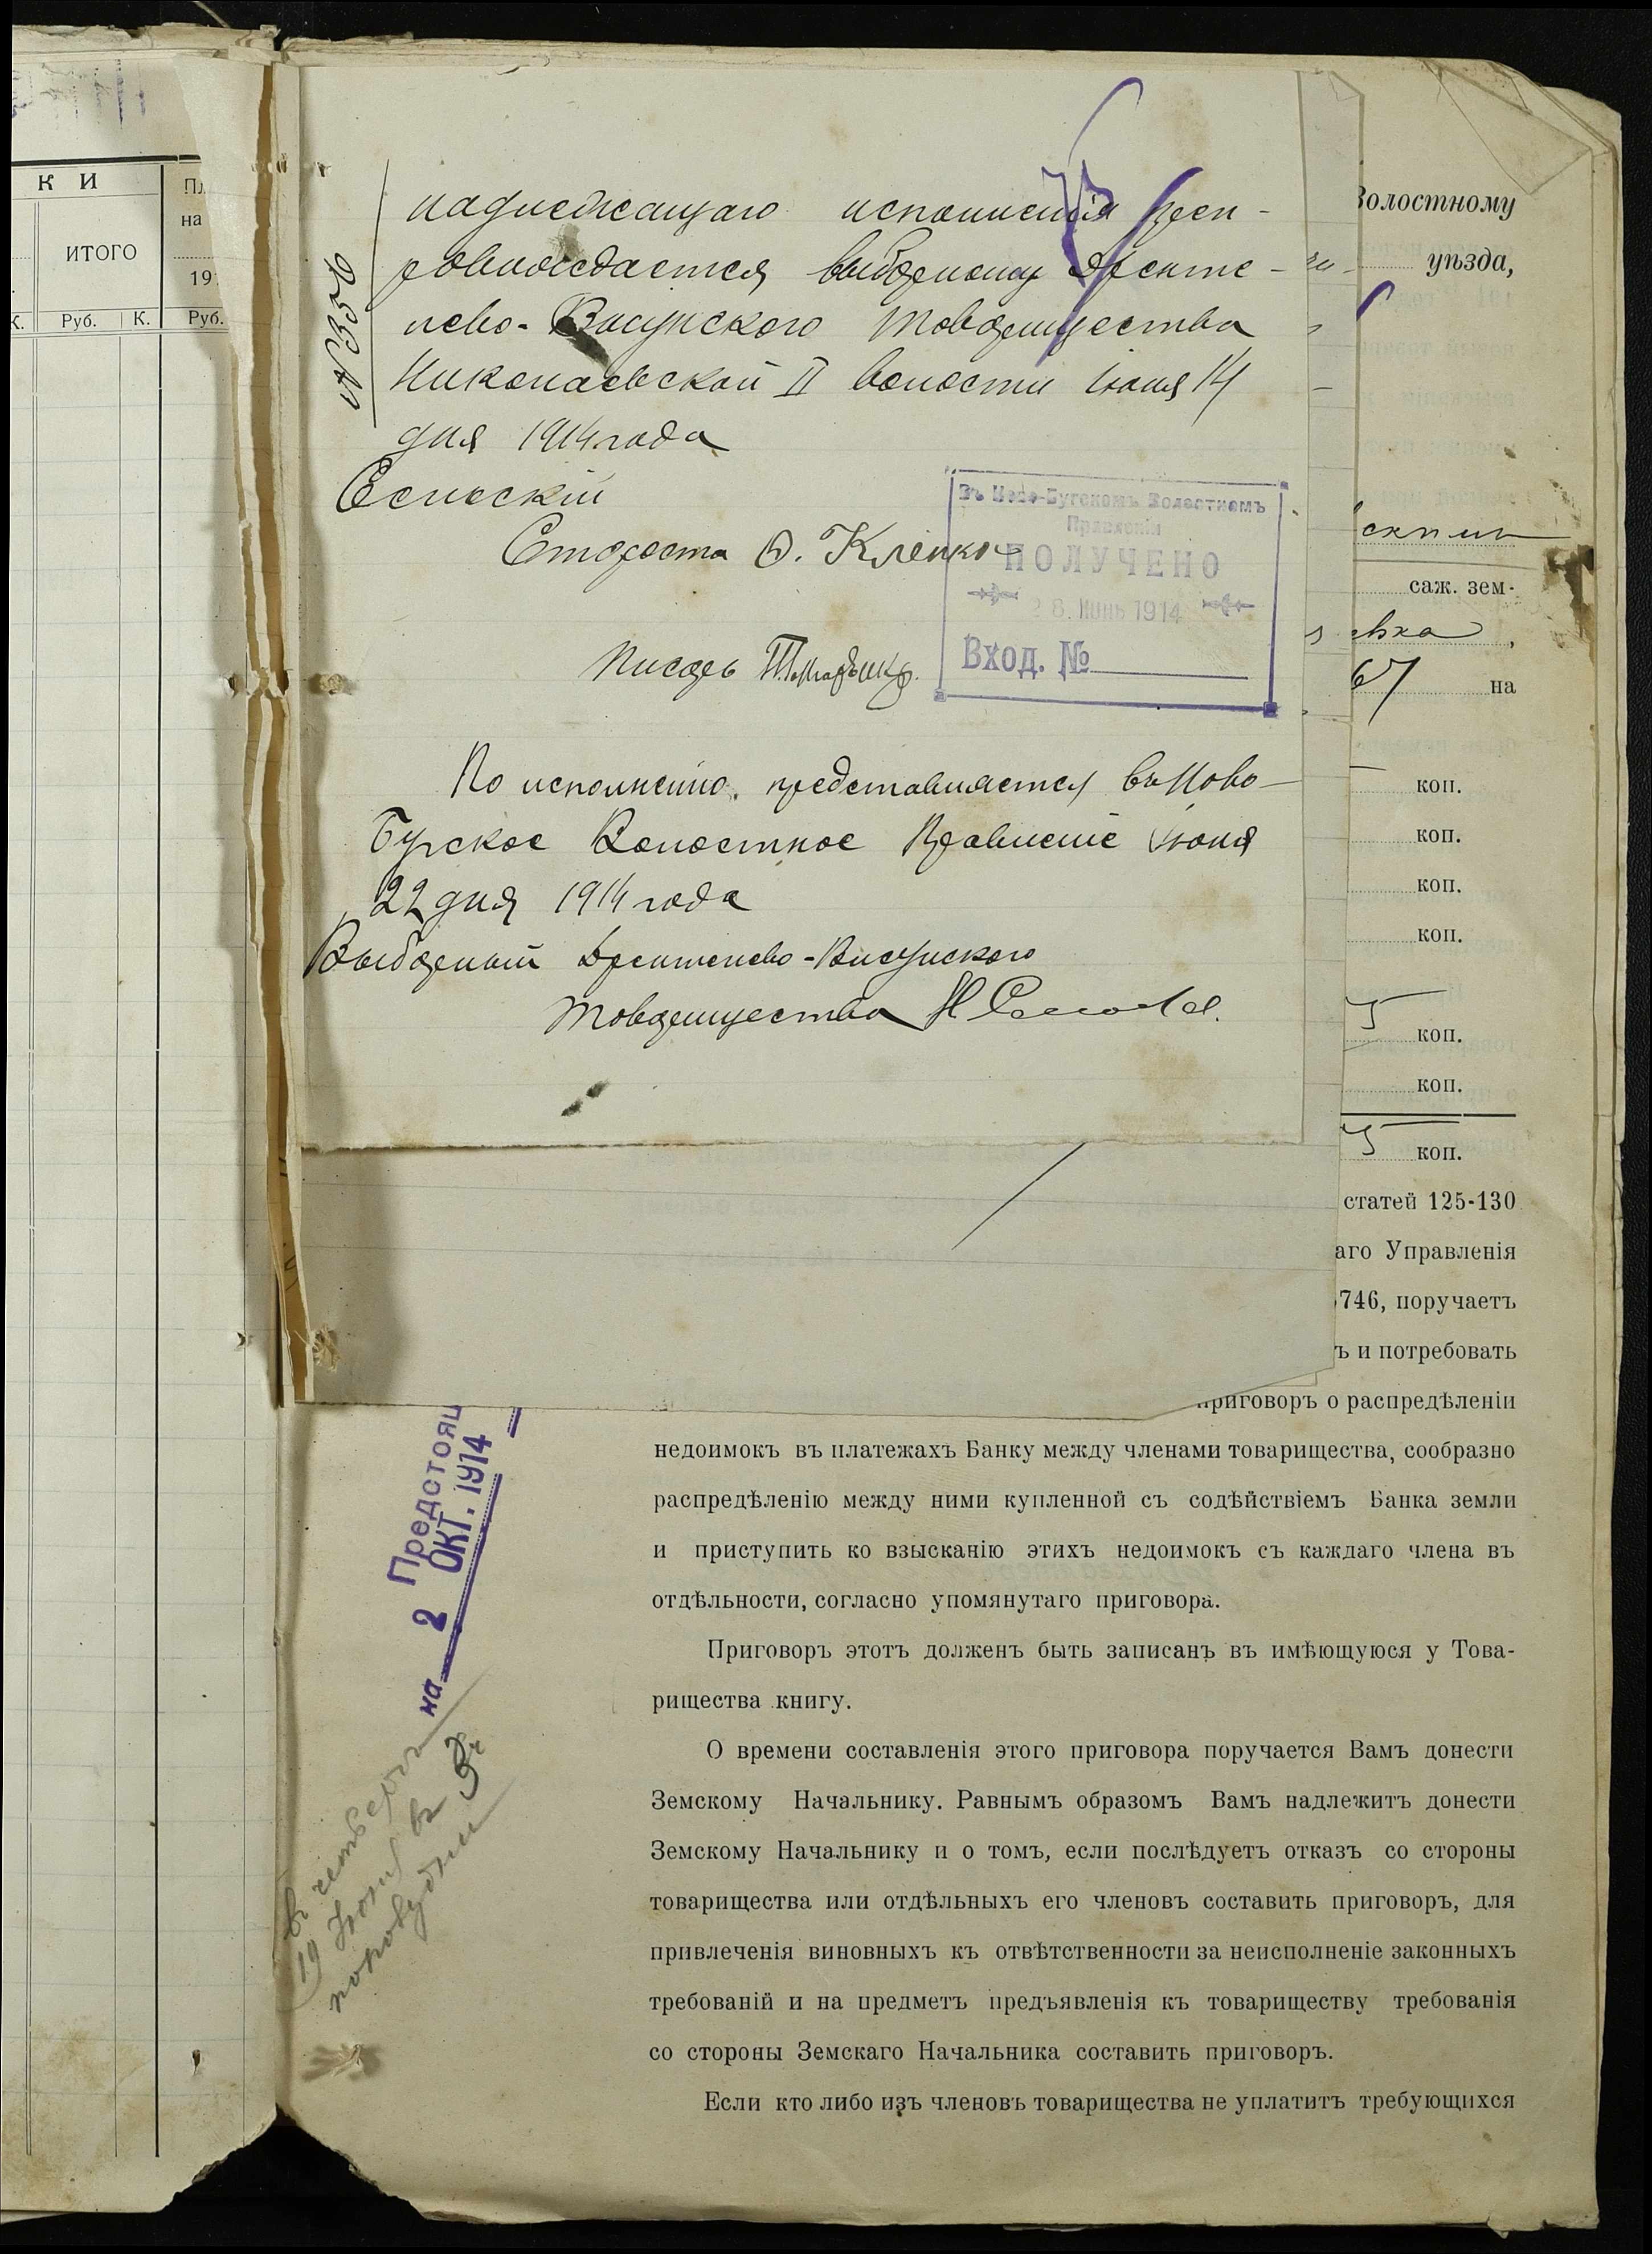 К И
ИТОГО
на
19
К.
Руб.
К.
Руб.
надлежащаго исполненія преп-
ровождается выборному Дренте-
лево-Висунского товарищества
Николаевской II волости Іюня 14
дня 1914 года
Сельскій
Староста
Писарь
Въ Ново-Бугскомъ Волостномъ
Правленіи
ПОЛУЧЕНО
Июнь 1914
Вход. №
По исполненію представляется въ Ново-
Бугское Волостное Правленіе Іюня
22 дня 1914 года
Выборный Дрентелево-Висунского
товарищества
Волостному
уѣзда,
саж. зем-
на
коп.
коп.
коп.
коп.
коп.
коп.
коп.
статей 125-130
аго Управленія
746, поручаетъ
ъ и потребовать
приговоръ о распредѣленіи
недоимокъ въ платежахъ Банку между членами товарищества, сообразно
распредѣленію между ними купленной съ содѣйствіемъ Банка земли
и приступить ко взысканію этихъ недоимокъ съ каждаго члена въ
отдѣльности, согласно упомянутаго приговора.
Приговоръ этотъ долженъ быть записанъ въ имѣющуюся у Това-
рищества книгу.
О времени составленія этого приговора поручается Вамъ донести
Земскому Начальнику. Равнымъ образомъ Вамъ надлежитъ донести
Земскому Начальнику и о томъ, если послѣдуетъ отказъ со стороны
товарищества или отдѣльныхъ его членовъ составить приговоръ, для
привлеченія виновныхъ къ отвѣтственности за неисполненіе законныхъ
требованій и на предметъ предъявленія къ товариществу требованія
со стороны Земскаго Начальника составить приговоръ.
Если кто либо изъ членовъ товарищества не уплатитъ требующихся
Предстоящ
на 2 ОКТ. 1914
в четвергъ
19 Іюня в 3 ч
пополудни